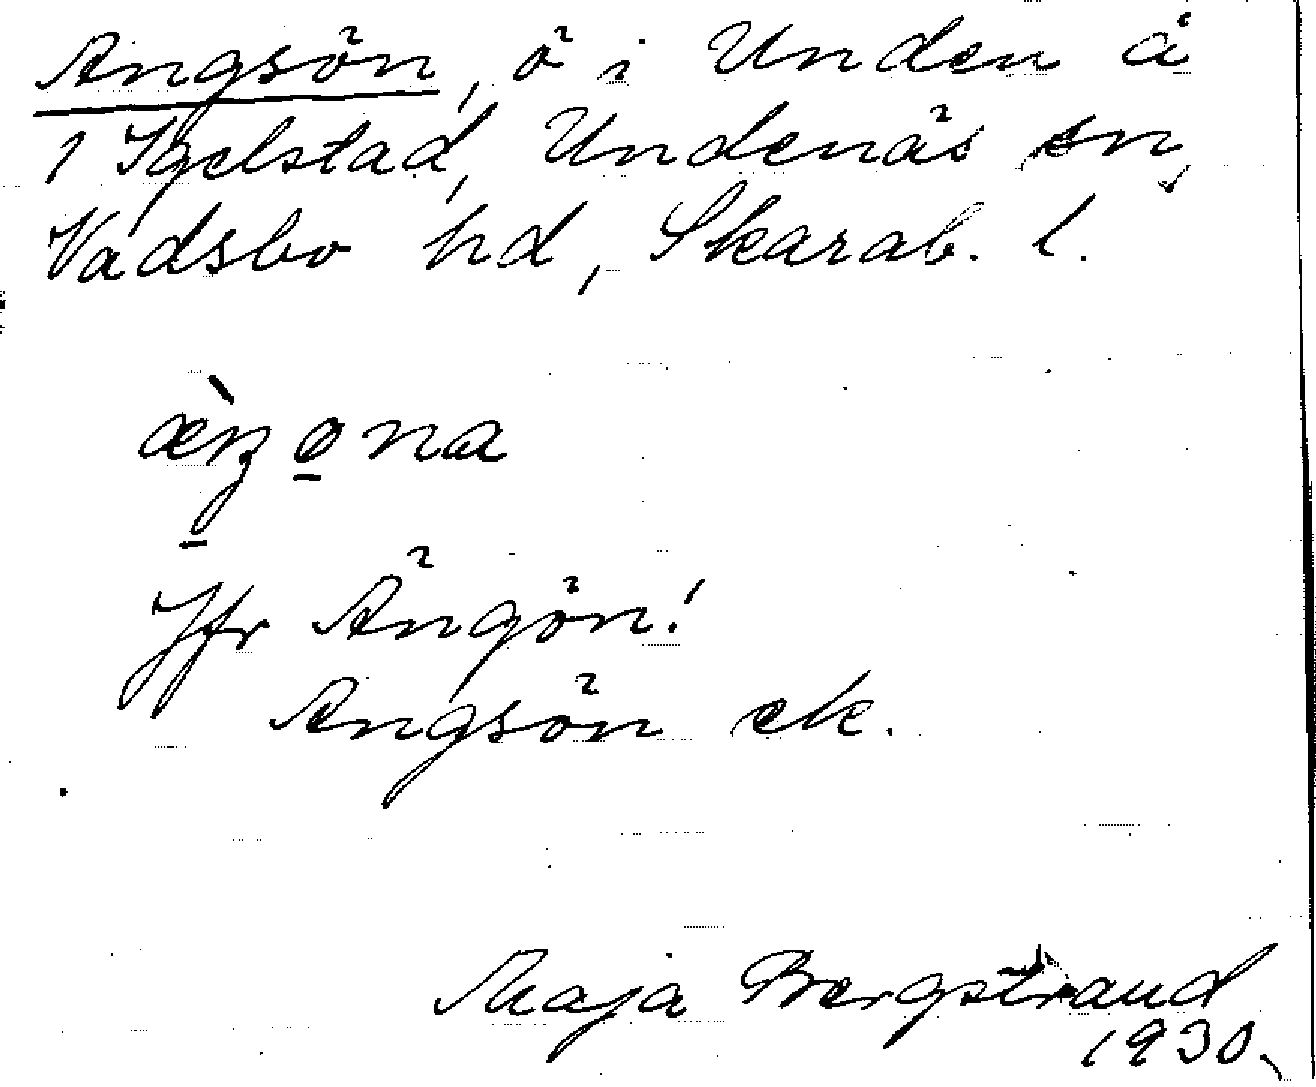 Angsön, ö i Unden å
1 Igelstad, Undenäs sn,
Vadsbo hd, Skarab. l.
Jfr Ängön!
Angsön ek.
Maja Bergstrand
1930.